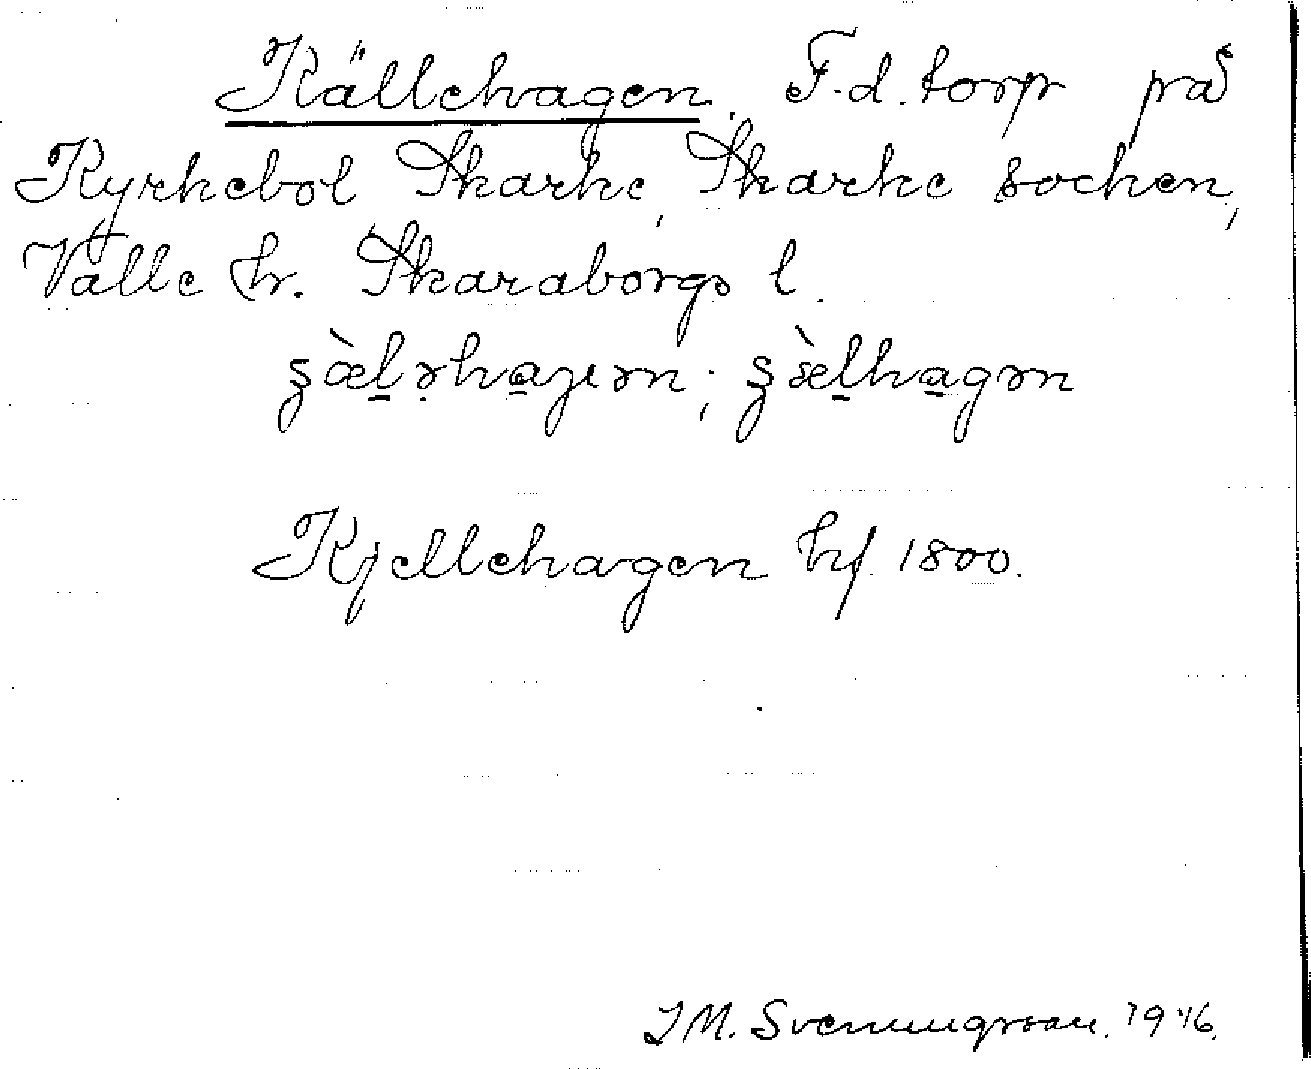 Källehagen. F.d. torp på
Kyrkebol Skarke, Skarke socken,
Valle hr. Skaraborgs l.
ʂæ̀l̠ərha̠jɪən; ʂæ̀l̠ha̠gən
Kjellehagen hf. 1800.
J M. Svenningsson. 1946.